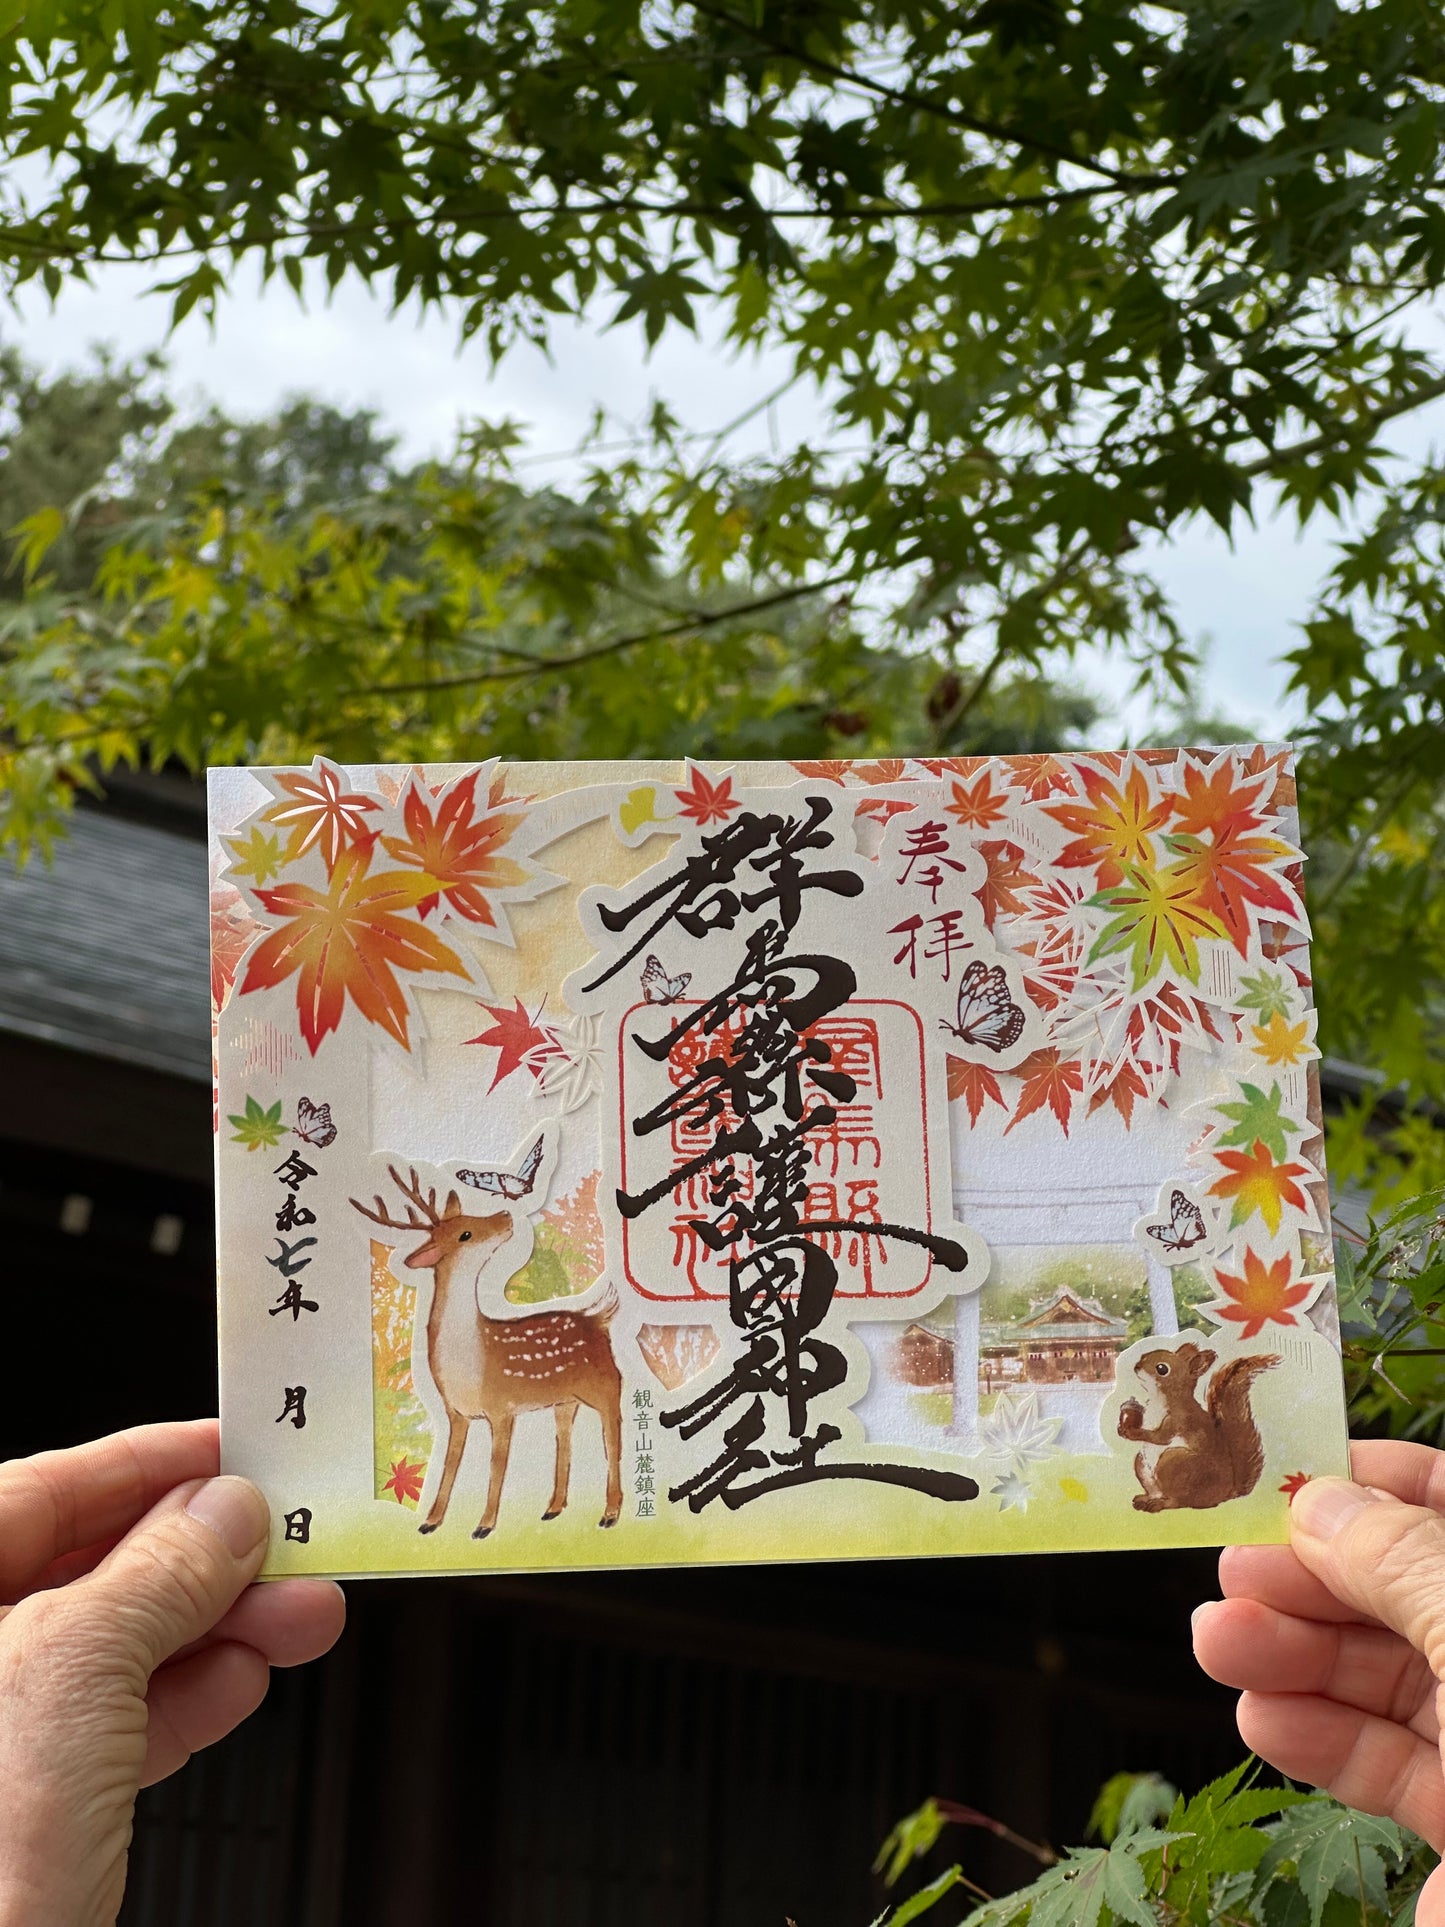 奉拝
群馬縣護国神社
観音山麓鎮座
令和七年
月
日